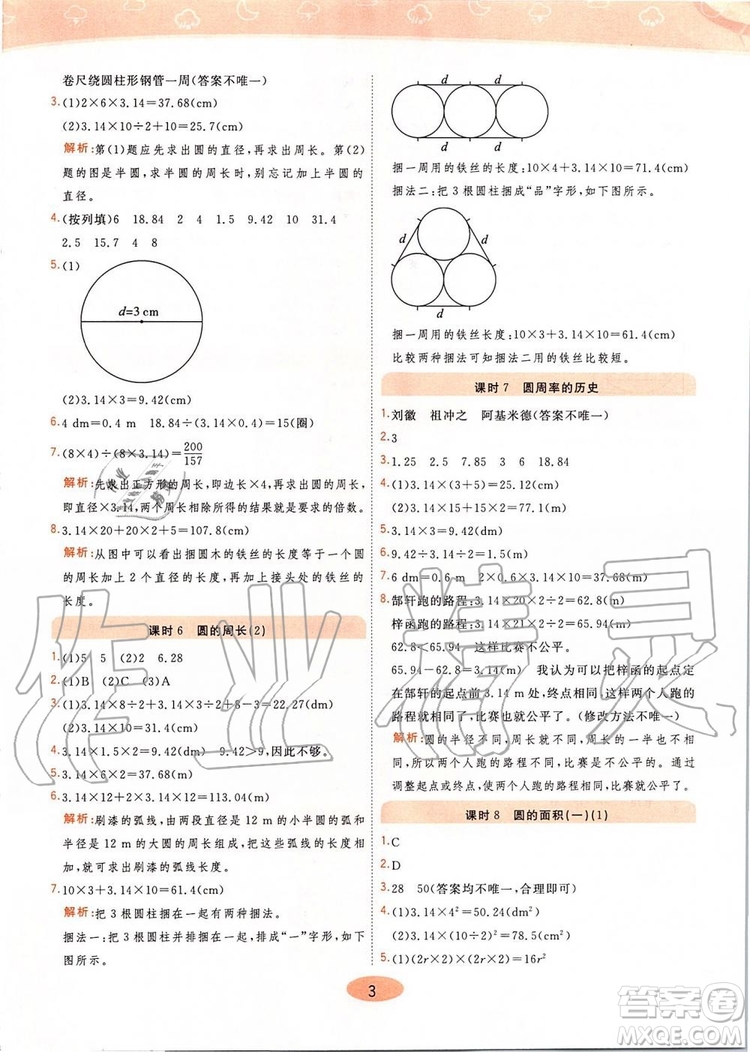 卷尺绕圆柱形钢管一周(答案不唯一)
3.(1)2×6×3.14=37.68(cm)
(2)3.14×10÷2+10=25.7(cm)
解析:第(1)题应先求出圆的直径,再求出周长。第(2)
题的图是半圆,求半圆的周长时,别忘记加上半圆的
直径。
4.(按列填)6 18.84 2 4 1.5 9.42 10 31.4
2.5 15.7 4 8
5.(1)
d=3 cm
(2)3.14×3=9.42(cm)
6.4 dm=0.4 m 18.84÷(3.14×0.4)=15(圈)
7.(8×4)÷(8×3.14)=200/157
解析:先求出正方形的周长,即边长×4,再求出圆的周长,即直径
×3.14,两个周长相除所得的结果就是要求的倍数。
8.3.14×20+20×2+5=107.8(cm)
解析:从图中可以看出捆圆木的铁丝的长度等于一个圆
的周长加上2个直径的长度,再加上接头处的铁丝的
长度。
课时6 圆的周长(2)
1.(1)5 5 (2)2 6.28
2.(1)B (2)C (3)A
3.(1)3.14×8÷2+3.14×(8-3)÷2+3=22.27(dm)
(2)3.14×10=31.4(cm)
4.3.14×3=9.42(m) 9.42>9,因此不够。
5.3.14×12+2×3.14×12=113.04(m)
解析:刷漆的弧线,由直径是12 m的小半圆的弧线
和半径是12 m的大圆的周长组成,把各部分的弧线
长度加起来,就可求出刷漆的弧线长度。
7.10×3+3.14×10=61.4(cm)
解析:把3根圆柱捆在一起有两种捆法。
捆法一:把3根圆柱并排捆在一起,排成“一”字形,如
下图所示。
d d
捆一周用的铁丝的长度:10×4+3.14×10=71.4(cm)
捆法二:把3根圆柱捆成“品”字形,如下图所示。
d d
d
捆一周用的铁丝长度:10×3+3.14×10=61.4(cm)
比较两种捆法可知捆法二用的铁丝比较短。
课时7 圆周率的历史
1.刘徽 祖冲之 阿基米德(答案不唯一)
2.3
3.1.25 2.5 7.85 3 6 18.84
4.(1)3.14×8=25.12(cm)
(2)3.14×15+15×2=77.1(cm)
5.3.14×3=9.42(dm)
6.9.42÷3.14÷2=1.5(m)
7.6 dm=0.6 m 2×0.6×3.14=3.768(m)
8.郜轩跑的路程:3.14×20×2÷2=62.8(m)
梓函跑的路程:3.14×21×2÷2=65.94(m)
62.8<65.94,所以这样比赛不公平。
65.94-62.8=3.14(m) 我认为可以把梓函的起点定
在郜轩的起点前3.14 m处,终点相同,这样两个人跑的
路程就相等了,比赛也就公平了。(修改方法不唯一)
解析:圆的半径不同,周长就不同,周长的一半也不相
同,所以两个人跑的路程不相同,比赛就是不公平的。
调整起点或终点,使两个人跑的路程相同,比赛就公平了。
课时8 圆的面积(一)(1)
1.C
2.D
3.28 50(答案均不唯一,合理即可)
4.(1)3.14×4²=50.24(dm²)
(2)3.14×(10÷2)²=78.5(cm²)
5.(1)(2r×2)×(2r×2)=16r²
3
作业精灵
答案圈
MXQE.COM